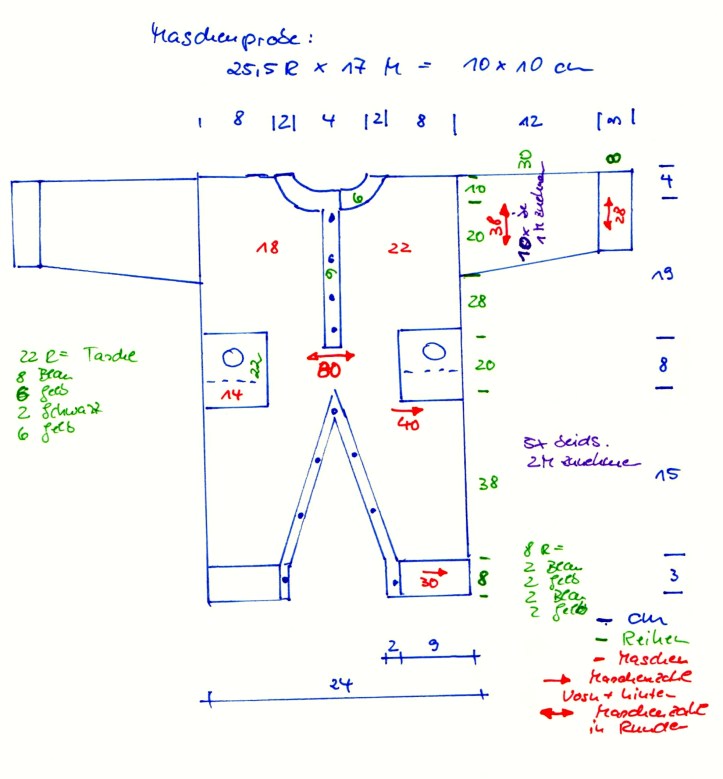 Maschenprobe:
25,5 R x 17 M = 10 x 10 cm
8 |2| 4 |2| 8 | 12 | 3 |
30
8
10
6
38
10x je
1 M zunehmen
28
4
18
22
20
6
19
28
22 R = Tasche
8 Blau
6 Gelb
2 Schwarz
6 Gelb
22
14
80
20
8
40
5x beids.
2 M zunehmen
38
15
8 R =
2 Blau
2 Gelb
2 Blau
2 Gelb
30
8
3
- cm
- Reihen
- Maschen
→ Maschenzahl
Vorn + hinten
↔ Maschenzahl
in Runden
2 9
24